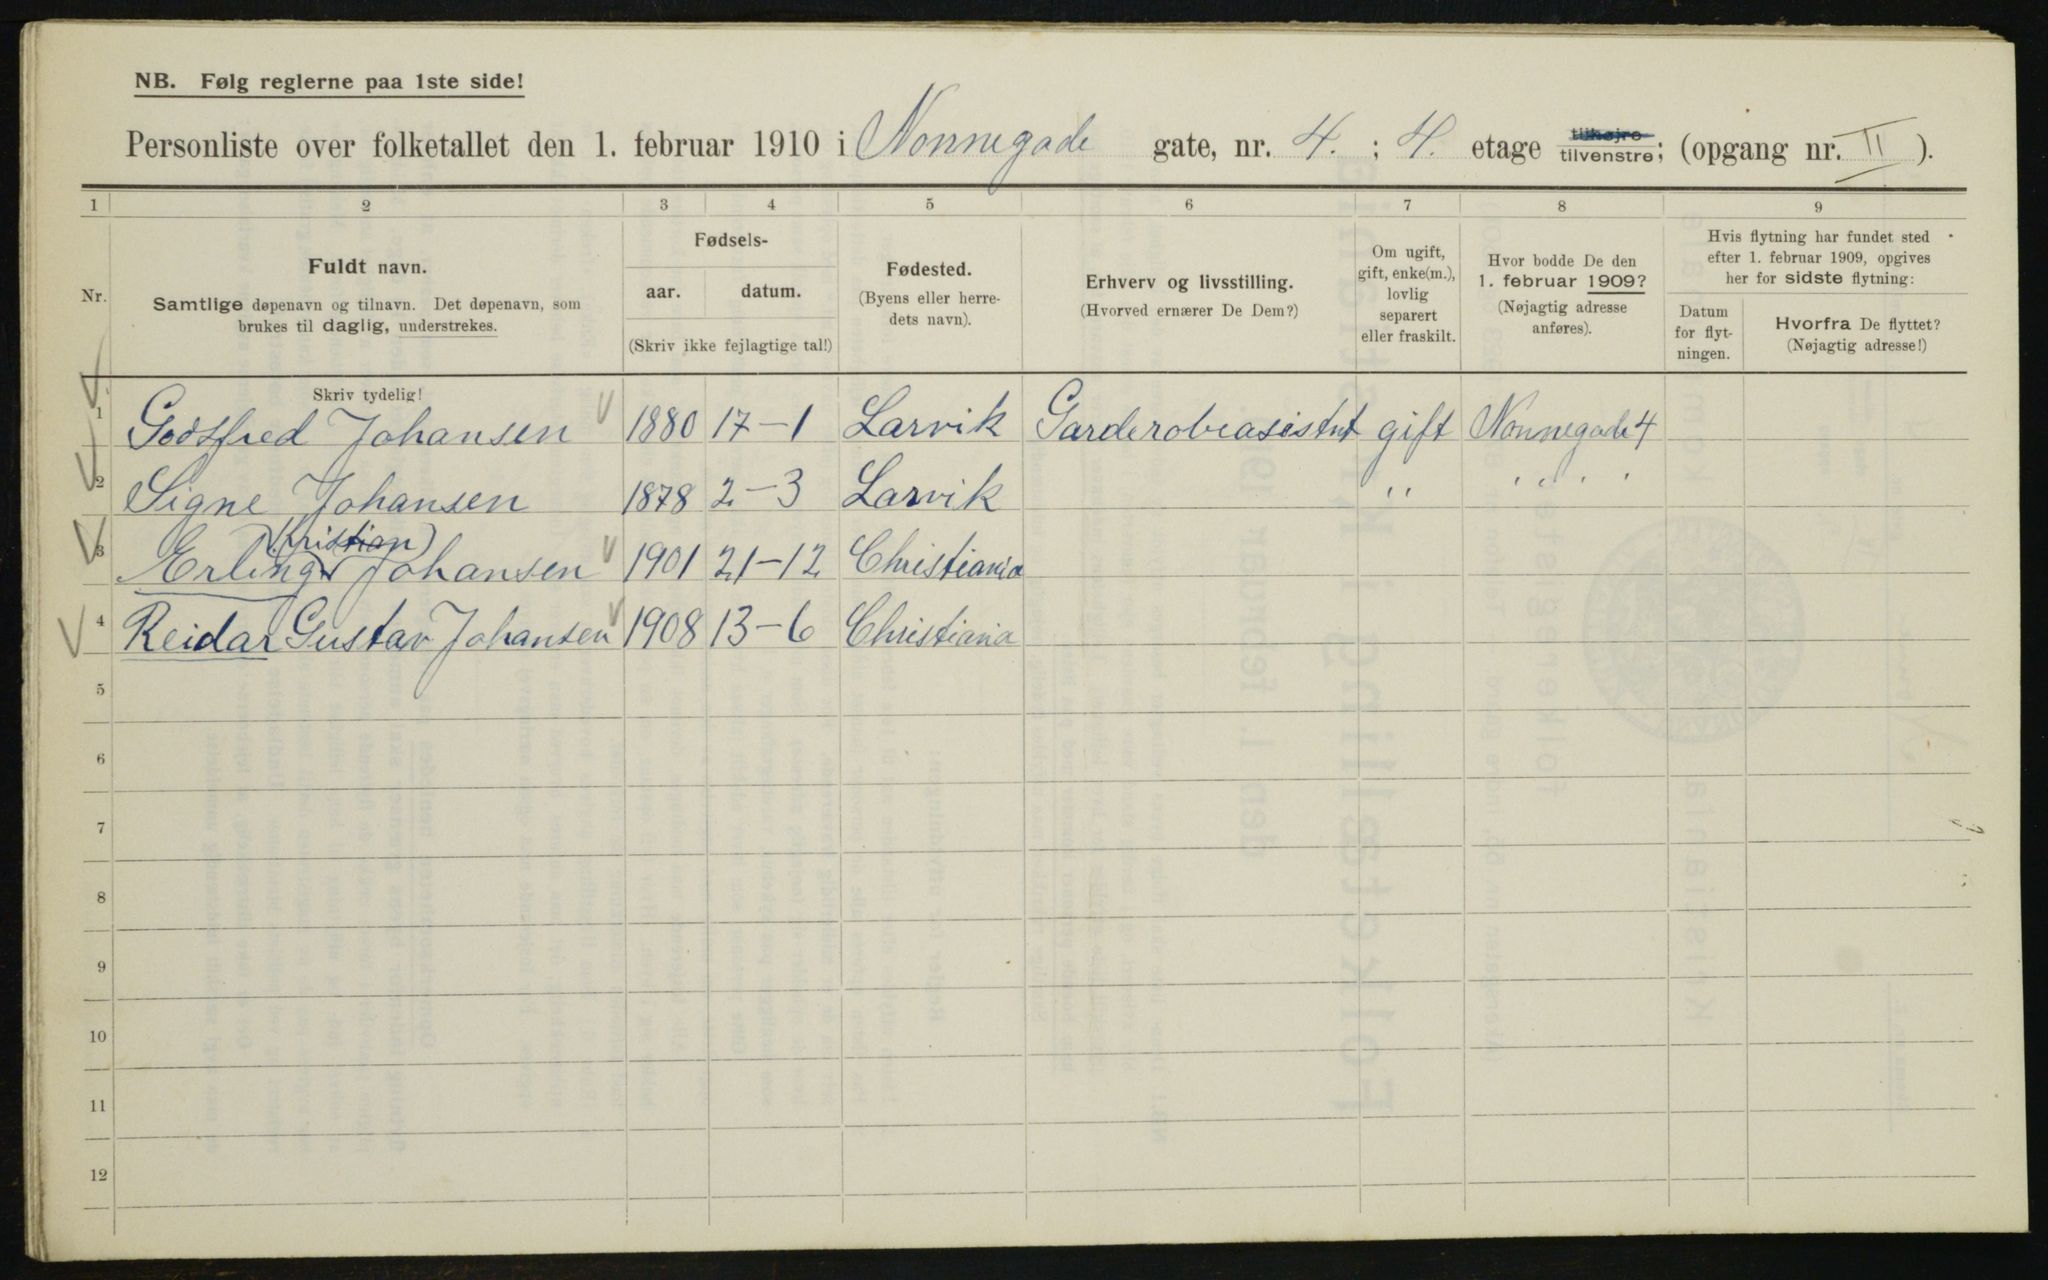 NB. Følg reglerne paa 1ste side!
Personliste over folketallet den 1. februar 1910 i Nonnegade gate, nr. 4. ; 4. etage tilhøjre tilvenstre; (opgang nr. II ).
1 2 3 4 5 6 7 8 9
Nr.
Fuldt navn.
Samtlige døpenavn og tilnavn. Det døpenavn, som
brukes til daglig, understrekes.
Fødsels-
aar. datum.
(Skriv ikke fejlagtige tal!)
Fødested.
(Byens eller herre-
dets navn).
Erhverv og livsstilling.
(Hvorved ernærer De Dem?)
Om ugift,
gift, enke(m.),
lovlig
separert
eller fraskilt.
Hvor bodde De den
1. februar 1909?
(Nøjagtig adresse
anføres).
Hvis flytning har fundet sted
efter 1. februar 1909, opgives
her for sidste flytning:
Datum
for flyt-
ningen.
Hvorfra De flyttet?
(Nøjagtig adresse!)
Skriv tydelig!
1 Godtfred Johansen 1880 17-1 Larvik Garderobeasistnt gift Nonnegade 4
2 Signe Johansen 1878 2-3 Larvik " " " " "
(Kristian)
3 Erling Johansen 1901 21-12 Christiania
4 Reidar Gustav Johansen 1908 13-6 Christiania
5
6
7
8
9
10
11
12